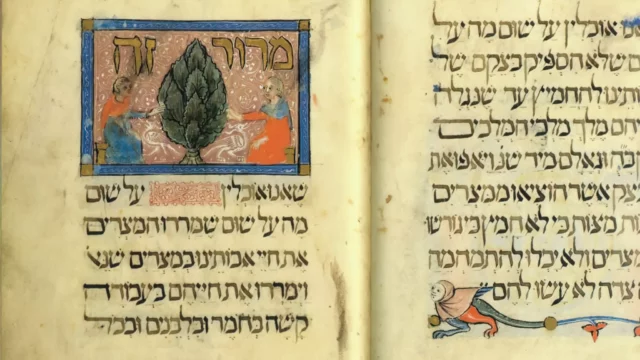 אוכלין על שום מה על
שלא הספיק בצקם של
להחמיץ עד שנגלה
מלך מלכי המלכים
וגאלם מיד שנ ויאפו את
אשר הוציאו ממצרים
מצות כי לא חמץ כי גורשו
ולא יכלו להתמהמה
צדה לא עשו להם
מרור זה
שאנו אוכלין על שום
מה על שום שמררו המצרים
את חיי אבותינו במצרים שנא
וימררו את חייהם בעבודה
קשה בחמר ובלבנים ובכל